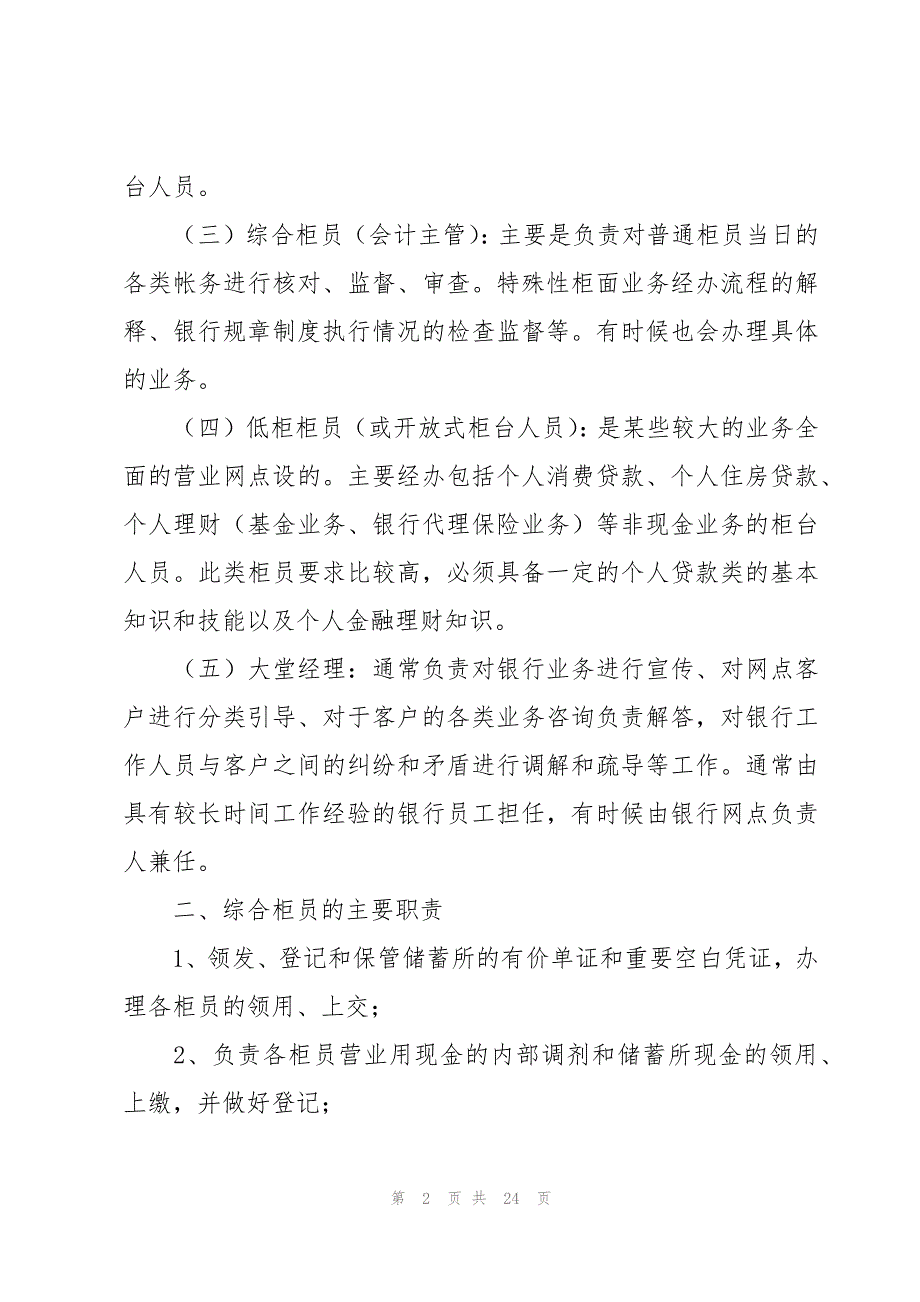 台人员。
（三）综合柜员（会计主管）：主要是负责对普通柜员当日的
各类帐务进行核对、监督、审查。特殊性柜面业务经办流程的解
释、银行规章制度执行情况的检查监督等。有时候也会办理具体
的业务。
（四）低柜柜员（或开放式柜台人员）：是某些较大的业务全
面的营业网点设的。主要经办包括个人消费贷款、个人住房贷款、
个人理财（基金业务、银行代理保险业务）等非现金业务的柜台
人员。此类柜员要求比较高，必须具备一定的个人贷款类的基本
知识和技能以及个人金融理财知识。
（五）大堂经理：通常负责对银行业务进行宣传、对网点客
户进行分类引导、对于客户的各类业务咨询负责解答，对银行工
作人员与客户之间的纠纷和矛盾进行调解和疏导等工作。通常由
具有较长时间工作经验的银行员工担任，有时候由银行网点负责
人兼任。
二、综合柜员的主要职责
1、领发、登记和保管储蓄所的有价单证和重要空白凭证，办
理各柜员的领用、上交；
2、负责各柜员营业用现金的内部调剂和储蓄所现金的领用、
上缴，并做好登记；
第 2 页 共 24 页